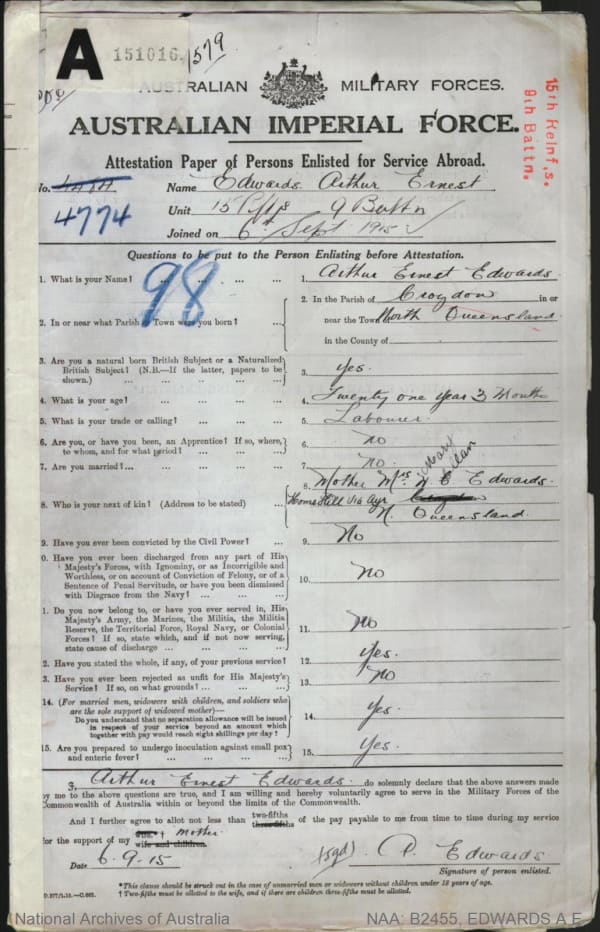 A
151016.
579
AUSTRALIAN MILITARY FORCES.
AUSTRALIAN IMPERIAL FORCE.
15th Reinf,s.
9th Battn.
Attestation Paper of Persons Enlisted for Service Abroad.
No. 4774 Name Edwards Arthur Ernest
Unit 15 9 Battn
Joined on 6th Sept 1915
Questions to be put to the Person Enlisting before Attestation.
98
1. What is your Name? ... ... ... ... 1. Arthur Ernest Edwards
2. In or near what Parish or Town were you born? ... 2. In the Parish of Croydon in or
near the Town of North Queensland
in the County of
3. Are you a natural born British Subject or a Naturalized
British Subject? (N.B.—If the latter, papers to be
shown.) ... ... ... ... 3. yes.
4. What is your age? ... ... ... ... 4. Twenty one year 3 Months
5. What is your trade or calling? ... ... ... 5. Labourer.
6. Are you, or have you been, an Apprentice? If so, where,
to whom, and for what period? ... ... ... 6. no
7. Are you married?... ... ... ... 7. no.
8. Who is your next of kin? (Address to be stated) ... 8. Mother Mrs Edwards.
Home Hill via Ayr Croydon
N. Queensland.
9. Have you ever been convicted by the Civil Power? ... 9. No
0. Have you ever been discharged from any part of His
Majesty's Forces, with Ignominy, or as Incorrigible and
Worthless, or on account of Conviction of Felony, or of a
Sentence of Penal Servitude, or have you been dismissed
with Disgrace from the Navy? ... ... ... 10. no
1. Do you now belong to, or have you ever served in, His
Majesty's Army, the Marines, the Militia, the Militia
Reserve, the Territorial Force, Royal Navy, or Colonial
Forces? If so, state which, and if not now serving,
state cause of discharge ... ... ... ... 11. no
2. Have you stated the whole, if any, of your previous service? 12. Yes.
3. Have you ever been rejected as unfit for His Majesty's
Service? If so, on what grounds? ... ... ... 13. no
14. (For married men, widowers with children, and soldiers who
are the sole support of widowed mother)—
Do you understand that no separation allowance will be issued
in respect of your service beyond an amount which
together with pay would reach eight shillings per day? 14. Yes.
15. Are you prepared to undergo inoculation against small pox
and enteric fever? ... ... ... ... 15. Yes.
3, Arthur Ernest Edwards. do solemnly declare that the above answers made
by me to the above questions are true, and I am willing and hereby voluntarily agree to serve in the Military Forces of the
Commonwealth of Australia within or beyond the limits of the Commonwealth.
And I further agree to allot not less than two-fifths three-fifths of the pay payable to me from time to time during my service
for the support of my wife † Mother wife and children.
Date 6.9.15 (sgd). A. Edwards
Signature of person enlisted.
*This clause should be struck out in the case of unmarried men or widowers without children under 18 years of age.
† Two-fifths must be allotted to the wife, and if there are children three-fifths must be allotted.
National Archives of Australia
NAA: B2455, EDWARDS A E